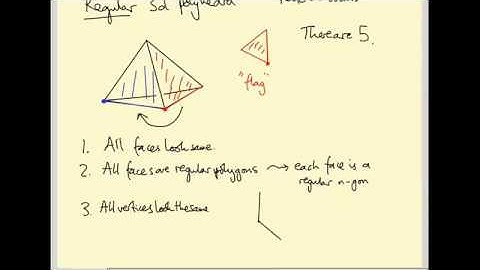 Regular 3d polyhedra
There are 5.
"flag"
1. All faces look same
2. All faces are regular polygons → each face is a
regular n-gon
3. All vertices look the same